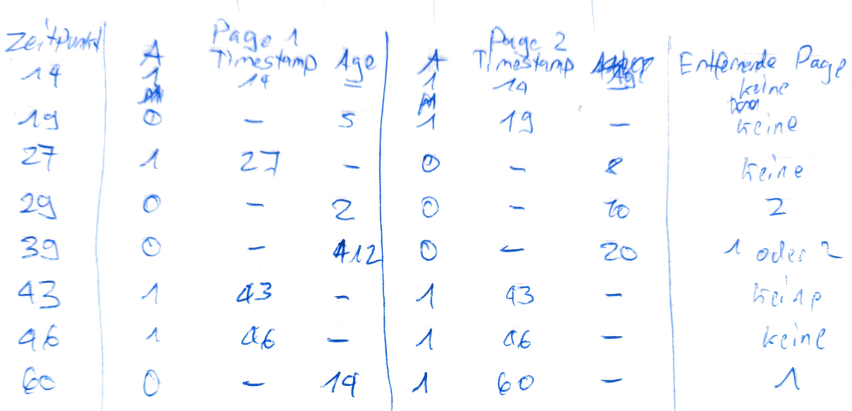 Zeitpunkt A Page 1 Timestamp Age A Page 2 Timestamp Age Entfernende Page
14 1 14 – 1 14 – keine
19 0 – 5 1 19 – keine
27 1 27 – 0 – 8 keine
29 0 – 2 0 – 10 2
39 0 – 12 0 – 20 1 oder 2
43 1 43 – 1 43 – keine
46 1 46 – 1 46 – keine
60 0 – 14 1 60 – 1